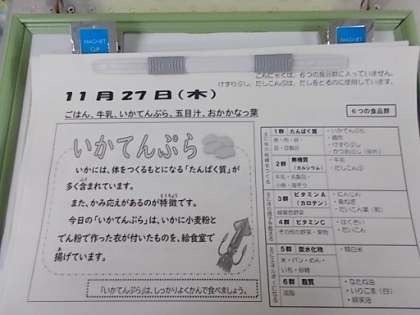 MAGNET CLIP
MAGNET CLIP
こんにゃくは、6つの食品群に入っていません。
けずりぶし、だしこんぶは、だしをとるのに使用しています。
11月27日(木)
ごはん、牛乳、いかてんぷら、五目汁、おかかなっ葉
6つの食品群
いかてんぷら
いかには、体をつくるもとになる「たんぱく質」が
多く含まれています。
また、かみ応えがあるのが特徴です。
今日の「いかてんぷら」は、いかに小麦粉と
でん粉で作った衣が付いたものを、給食室で
揚げています。
「いかてんぷら」は、しっかりよくかんで食べましょう。
1群 たんぱく質
・いかてんぷら
2群 無機質
(カルシウム)
・牛乳
3群 ビタミンA
(カロテン)
・にんじん
緑黄色野菜
4群 ビタミンC
・はくさい
その他の野菜・果物
5群 炭水化物
・精白米
米・パン・めん・
いも・砂糖
6群 脂質
・なたね油
油脂
・いりごま(白)